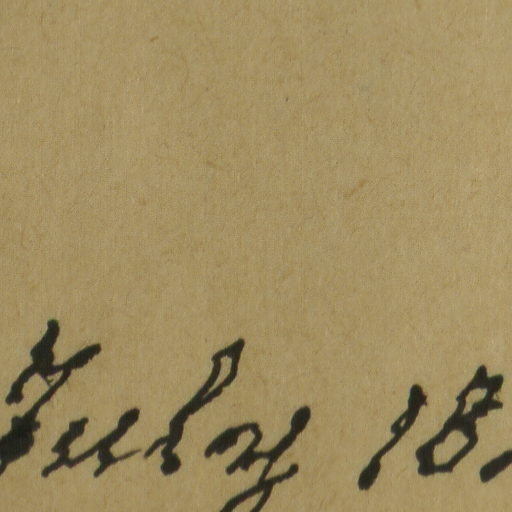 July 18